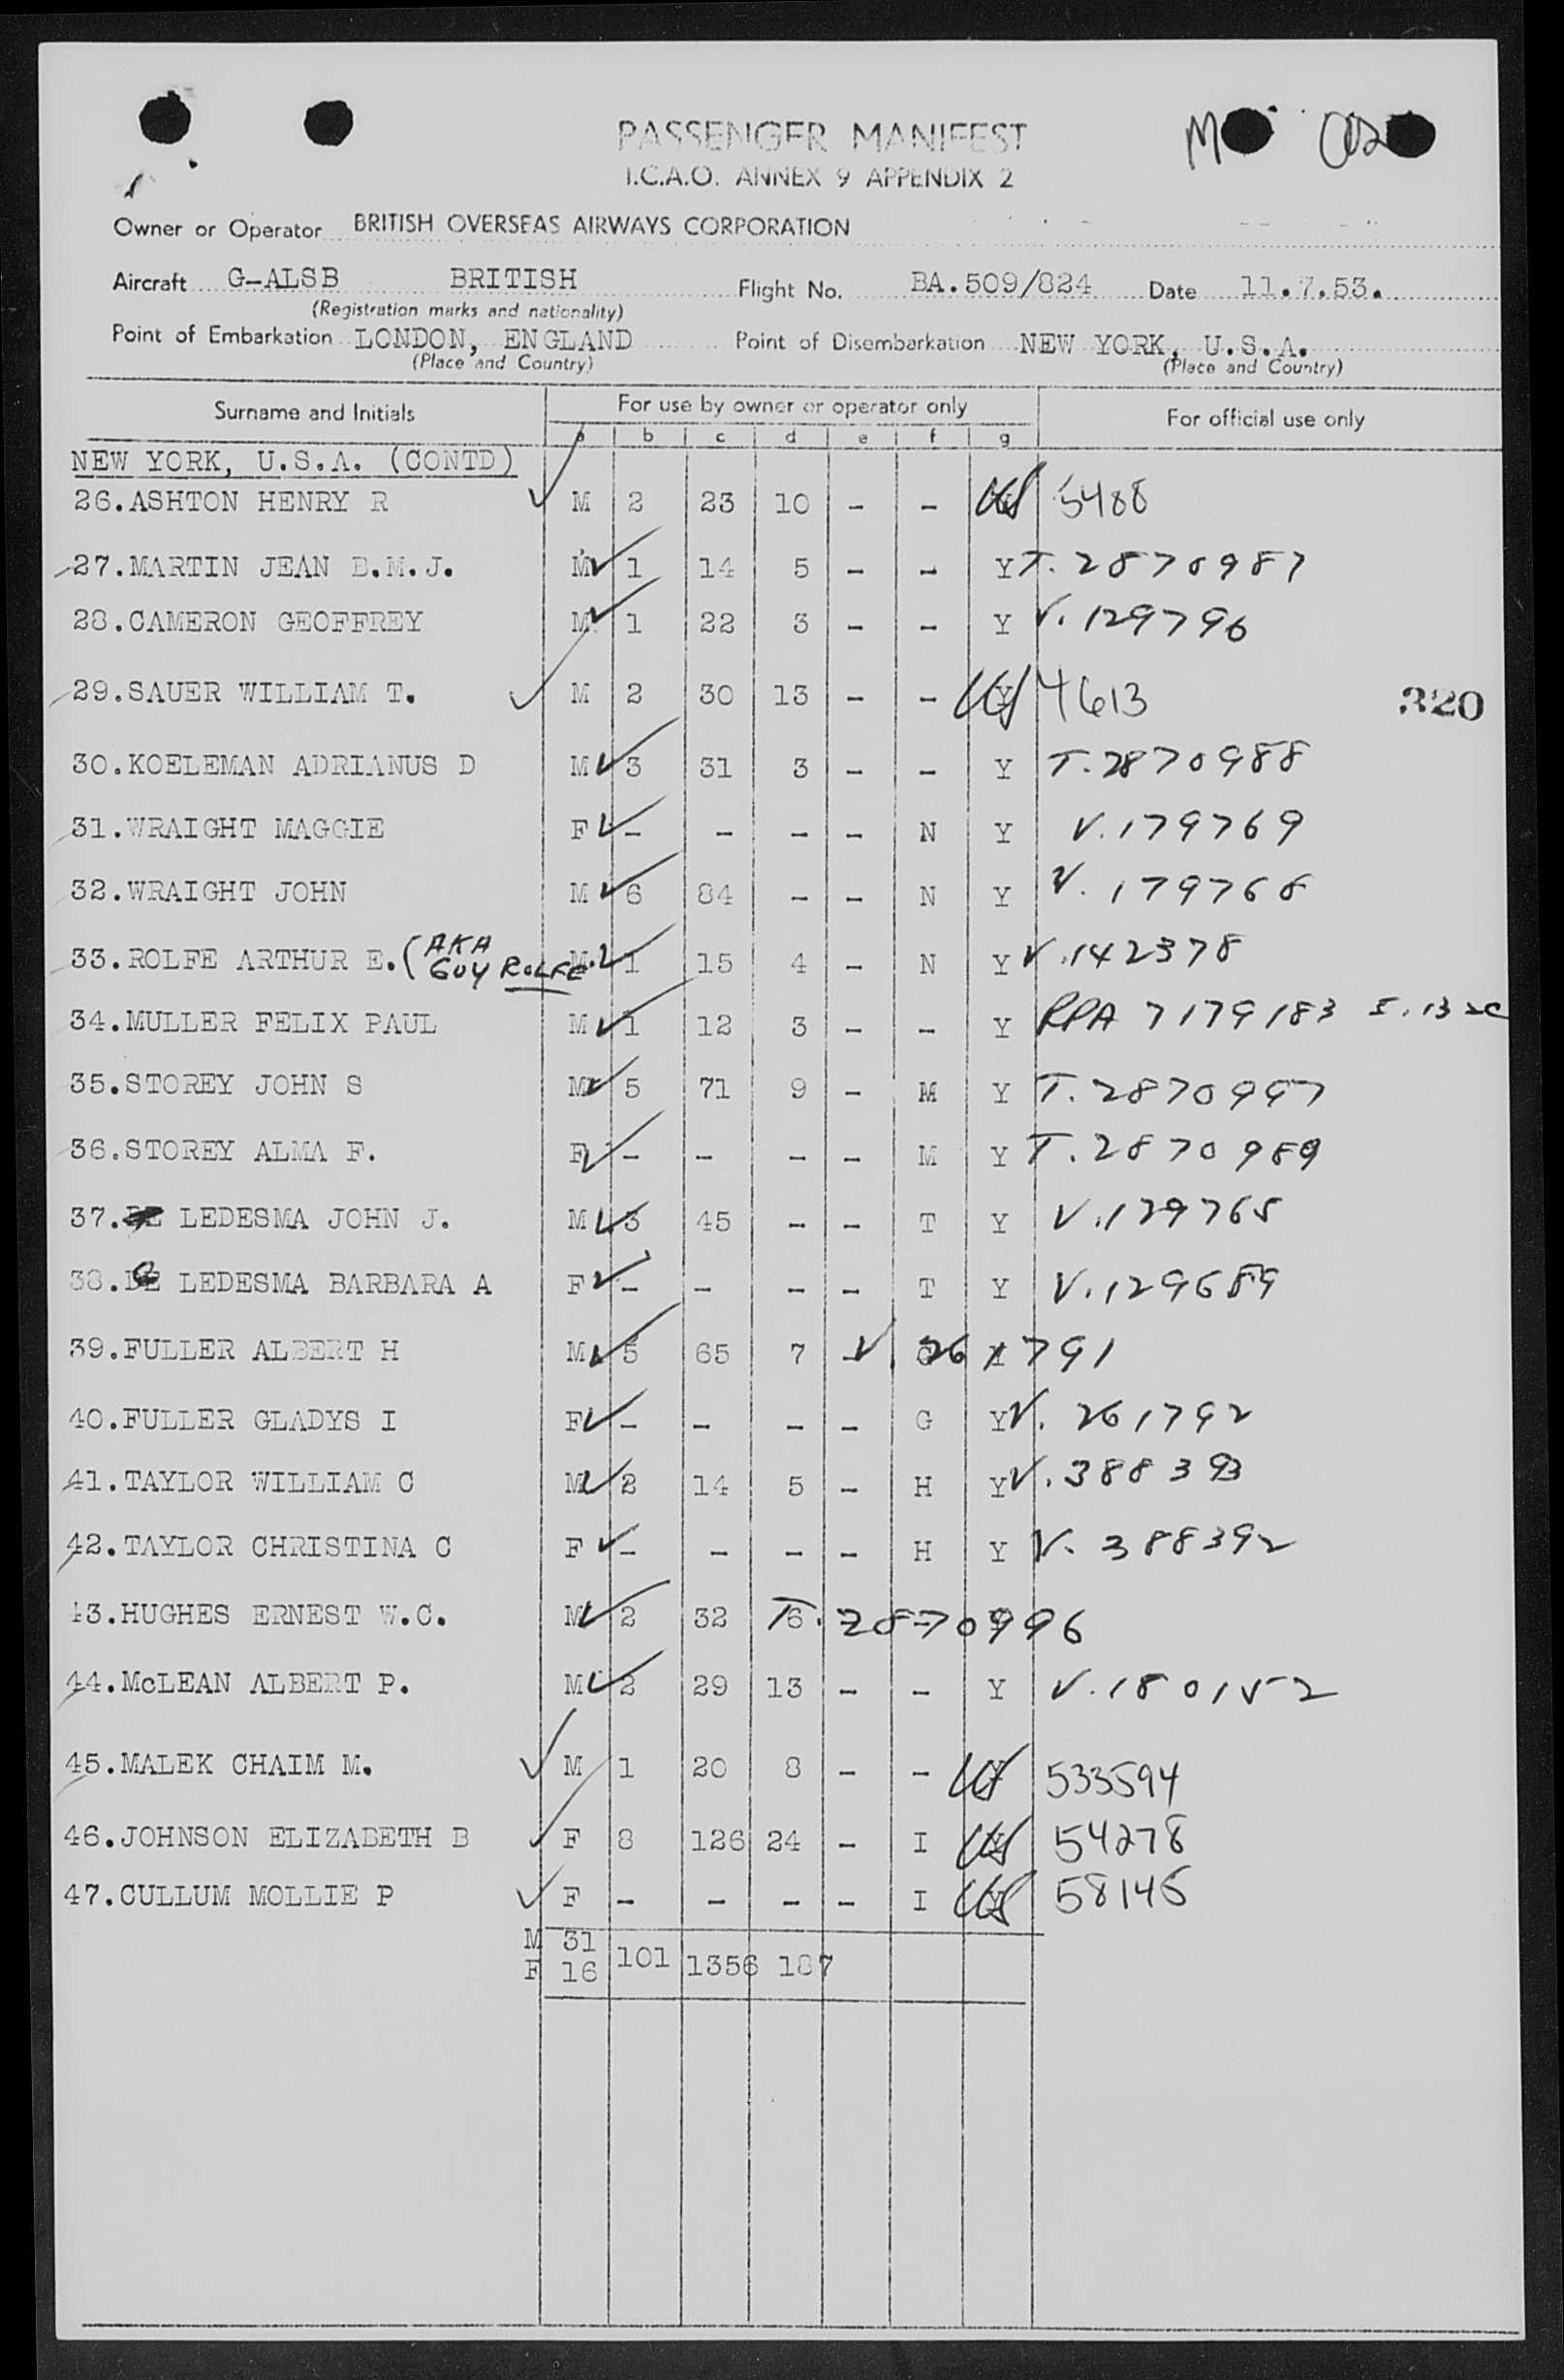 PASSENGER MANIFEST
I.C.A.O. ANNEX 9 APPENDIX 2
Owner or Operator BRITISH OVERSEAS AIRWAYS CORPORATION
Aircraft G-ALSB BRITISH Flight No. BA.509/824 Date 11.7.53.
(Registration marks and nationality)
Point of Embarkation LONDON, ENGLAND Point of Disembarkation NEW YORK, U.S.A.
(Place and Country) (Place and Country)
Surname and Initials For use by owner or operator only For official use only
a b c d e f g
NEW YORK, U.S.A. (CONTD)
26.ASHTON HENRY R M 2 23 10 - - US 5488
27.MARTIN JEAN B.M.J. M 1 14 5 - - Y T. 2870987
28.CAMERON GEOFFREY M 1 22 3 - - Y V. 129796
29.SAUER WILLIAM T. M 2 30 13 - - US 4613
320
30.KOELEMAN ADRIANUS D M 3 31 3 - - Y T. 2870988
31.WRAIGHT MAGGIE F - - - - N Y V. 179769
32.WRAIGHT JOHN M 6 84 - - N Y V. 179768
33.ROLFE ARTHUR E. (AKA GUY ROLFE M 1 15 4 - N Y V. 142378
34.MULLER FELIX PAUL M 1 12 3 - - Y RPA 7179183
35.STOREY JOHN S M 5 71 9 - M Y T. 2870997
36.STOREY ALMA F. F - - - - M Y T. 2870989
37. LEDESMA JOHN J. M 3 45 - - T Y V. 129765
38. LEDESMA BARBARA A F - - - - T Y V. 129689
39.FULLER ALBERT H M 5 65 7 - G V. 261791
40.FULLER GLADYS I F - - - - G Y V. 261792
41.TAYLOR WILLIAM C M 2 14 5 - H Y V. 388393
42.TAYLOR CHRISTINA C F - - - - H Y V. 388392
43.HUGHES ERNEST W.C. M 2 32 6 T. 2870996
44.McLEAN ALBERT P. M 2 29 13 - - Y V. 180152
45.MALEK CHAIM M. M 1 20 8 - - US 533594
46.JOHNSON ELIZABETH B F 8 126 24 - I US 54278
47.CULLUM MOLLIE P F - - - - I US 58145
M 31
F 16 101 1356 187